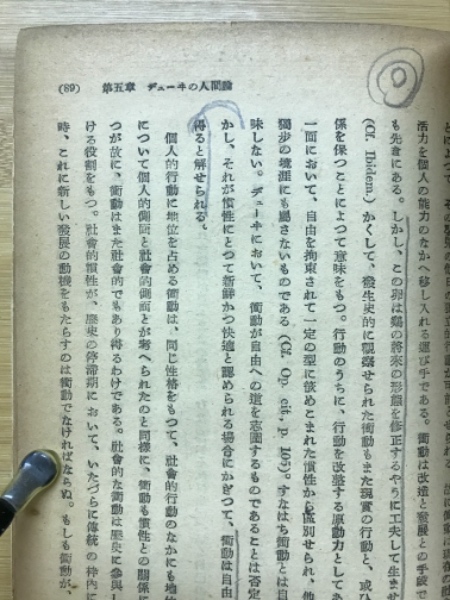 (89) 第五章 デューヰの人間論
活力を個人の能力のなかへ移し入れる選手である。衝動は改造と發展との手段で
も先きにある。しかし、この卵は鷄の將來の形態を修正するやうに工夫して生ませ
(Cf. Ibidem.) かくして、發生史的に觀察せられた衝動もまた現實の行動と、或ひ
係を保つことによつて意味をもつ。行動のうちに、行動を改鑿する原動力としてあ
一面において、自由を拘束されて一定の型に嵌めこまれた慣性から區別せられ、他
獨步の境涯にも屬さないものである (Cf. Op. cit., p. 105)。すなはち衝動とは自
味しない。デューヰにおいて、衝動が自由への道を志圖するものであることは否定
かし、それが慣性にとつて新鮮かつ快適と認められる場合にかぎつて、衝動は自由
得ると解せられる。
個人的行動に地位を占める衝動は、同じ性格をもつて、社會的行動のなかにも地位
について個人的側面と社會的側面とが考へられたのと同樣に、衝動も慣性との關係に
つが故に、衝動はまた社會的でもあり得るわけである。社會的な衝動は歷史に參與し
ける役割をもつ。社會的慣性が、歷史の停滯期において、いたづらに傳統の枠內に
時、これに新しい發展の動機をもたらすのは衝動でなければならぬ。もしも衝動が、